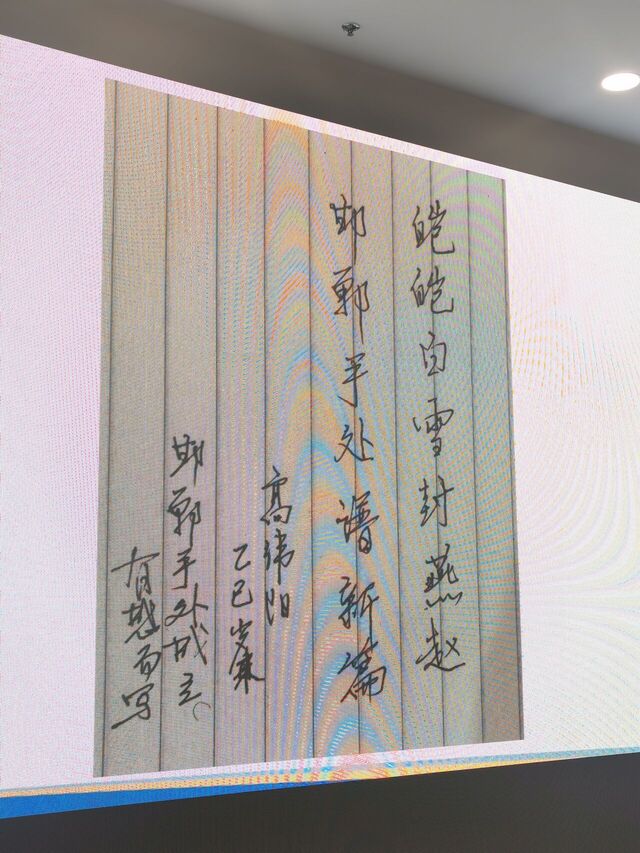 皑皑白雪封燕赵
邯郸手处谱新篇
高纬阳
乙巳岁末
邯郸手处成立
有感而写